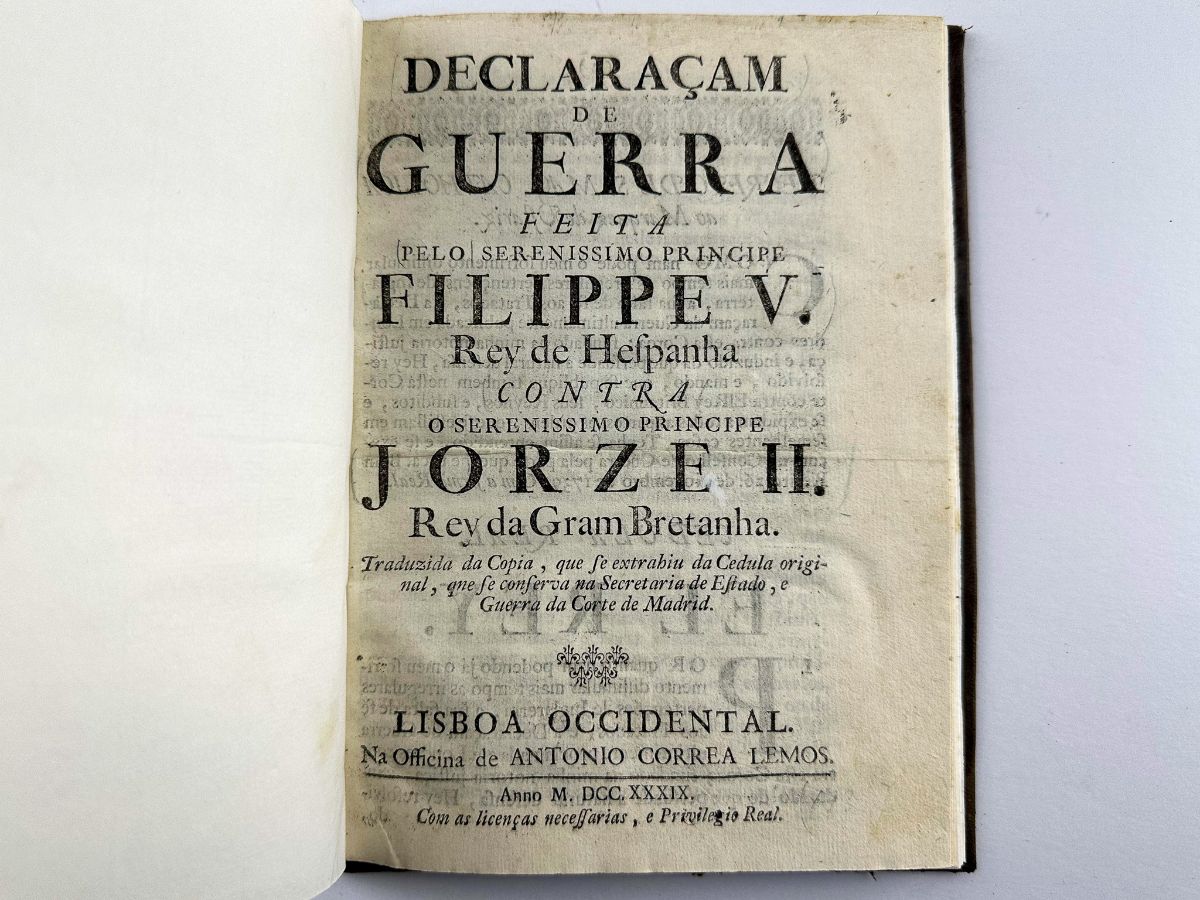 DECLARAÇAM
DE
GUERRA
FEITA
PELO SERENISSIMO PRINCIPE
FILIPPE V.
Rey de Heſpanha
CONTRA
O SERENISSIMO PRINCIPE
JORZE II.
Rey da Gram Bretanha.
Traduzida da Copia, que ſe extrahiu da Cedula origi-
nal, que ſe conſerva na Secretaria de Eſtado, e
Guerra da Corte de Madrid.
LISBOA OCCIDENTAL.
Na Officina de ANTONIO CORREA LEMOS.
Anno M. DCC. XXXIX.
Com as licenças neceſſarias, e Privilegio Real.